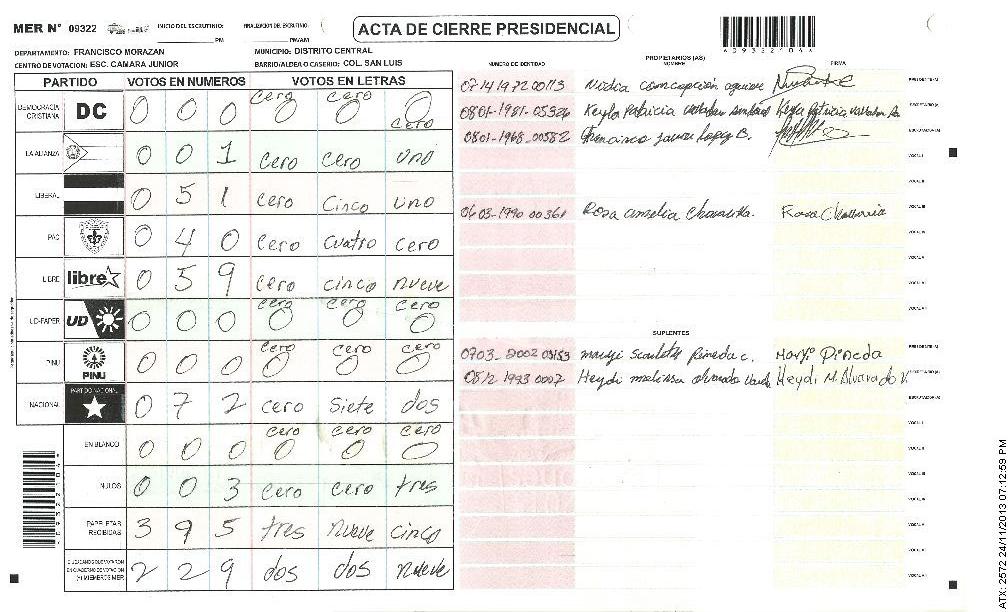 MER N° 09322 INICIO DEL ESCRUTINIO: PM FINALIZACION DEL ESCRUTINIO: PM/AM ACTA DE CIERRE PRESIDENCIAL
DEPARTAMENTO: FRANCISCO MORAZAN MUNICIPIO: DISTRITO CENTRAL
CENTRO DE VOTACION: ESC. CAMARA JUNIOR BARRIO/ALDEA O CASERIO: COL. SAN LUIS
NUMERO DE IDENTIDAD PROPIETARIOS (AS) NOMBRE FIRMA
PARTIDO VOTOS EN NUMEROS VOTOS EN LETRAS
DEMOCRACIA CRISTIANA DC 0 0 0 cero cero cero
LA ALIANZA 0 0 1 cero cero uno
LIBERAL 0 5 1 cero cinco uno
PAC 0 4 0 cero cuatro cero
LIBRE libre 0 5 9 cero cinco nueve
UD-FAPER UD 0 0 0 cero cero cero
PINU PINU 0 0 0 cero cero cero
NACIONAL PARTIDO NACIONAL 0 7 2 cero siete dos
EN BLANCO 0 0 0 cero cero cero
NULOS 0 0 3 cero cero tres
PAPELETAS RECIBIDAS 3 9 5 tres nueve cinco
CIUDADANOS QUE VOTARON EN CUADERNO DE VOTACION (+) MIEMBROS MER 2 2 9 dos dos nueve
0714 1972 00113 PRESIDENTE(A)
0801-1981-05326 Keyla Patricia SECRETARIO(A)
0801-1968-00582 Francisco Javier Lopez B. ESCRUTADOR(A)
VOCAL I
VOCAL II
0603-1990 00361 Rosa amelia Rosa VOCAL III
SUPLENTES
0703-2002 Pineda c. Maryi Pineda PRESIDENTE(A)
0812 1993 0007 Heydi melissa alvarado Heydi M. Alvarado V. SECRETARIO(A)
ESCRUTADOR(A)
VOCAL I
VOCAL II
ATX: 2572 24/11/2013 07:12:59 PM